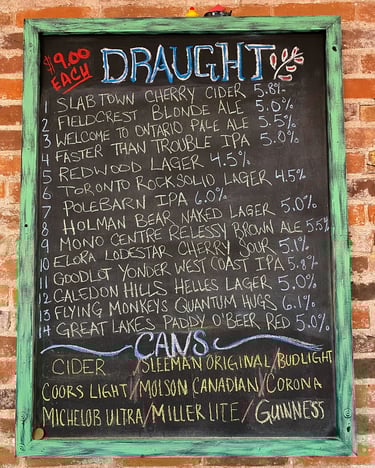 $9.00 EACH
DRAUGHT
1 SLABTOWN CHERRY CIDER 5.8%
2 FIELDCREST BLONDE ALE 5.0%
3 WELCOME TO ONTARIO PALE ALE 5.5%
4 FASTER THAN TROUBLE IPA 5.0%
5 REDWOOD LAGER 4.5%
6 TORONTO ROCKSOLID LAGER 4.5%
7 POLEBARN IPA 6.0%
8 HOLMAN BEAR NAKED LAGER 5.0%
9 MONO CENTRE RELESSY BROWN ALE 5.5%
10 ELORA LODESTAR CHERRY SOUR 5.1%
11 GOODLOT YONDER WEST COAST IPA 5.8%
12 CALEDON HILLS HELLES LAGER 5.0%
13 FLYING MONKEYS QUANTUM HUGS 6.1%
14 GREAT LAKES PADDY O'BEER RED 5.0%
CANS
CIDER / SLEEMAN ORIGINAL / BUDLIGHT
COORS LIGHT / MOLSON CANADIAN / CORONA
MICHELOB ULTRA / MILLER LITE / GUINNESS